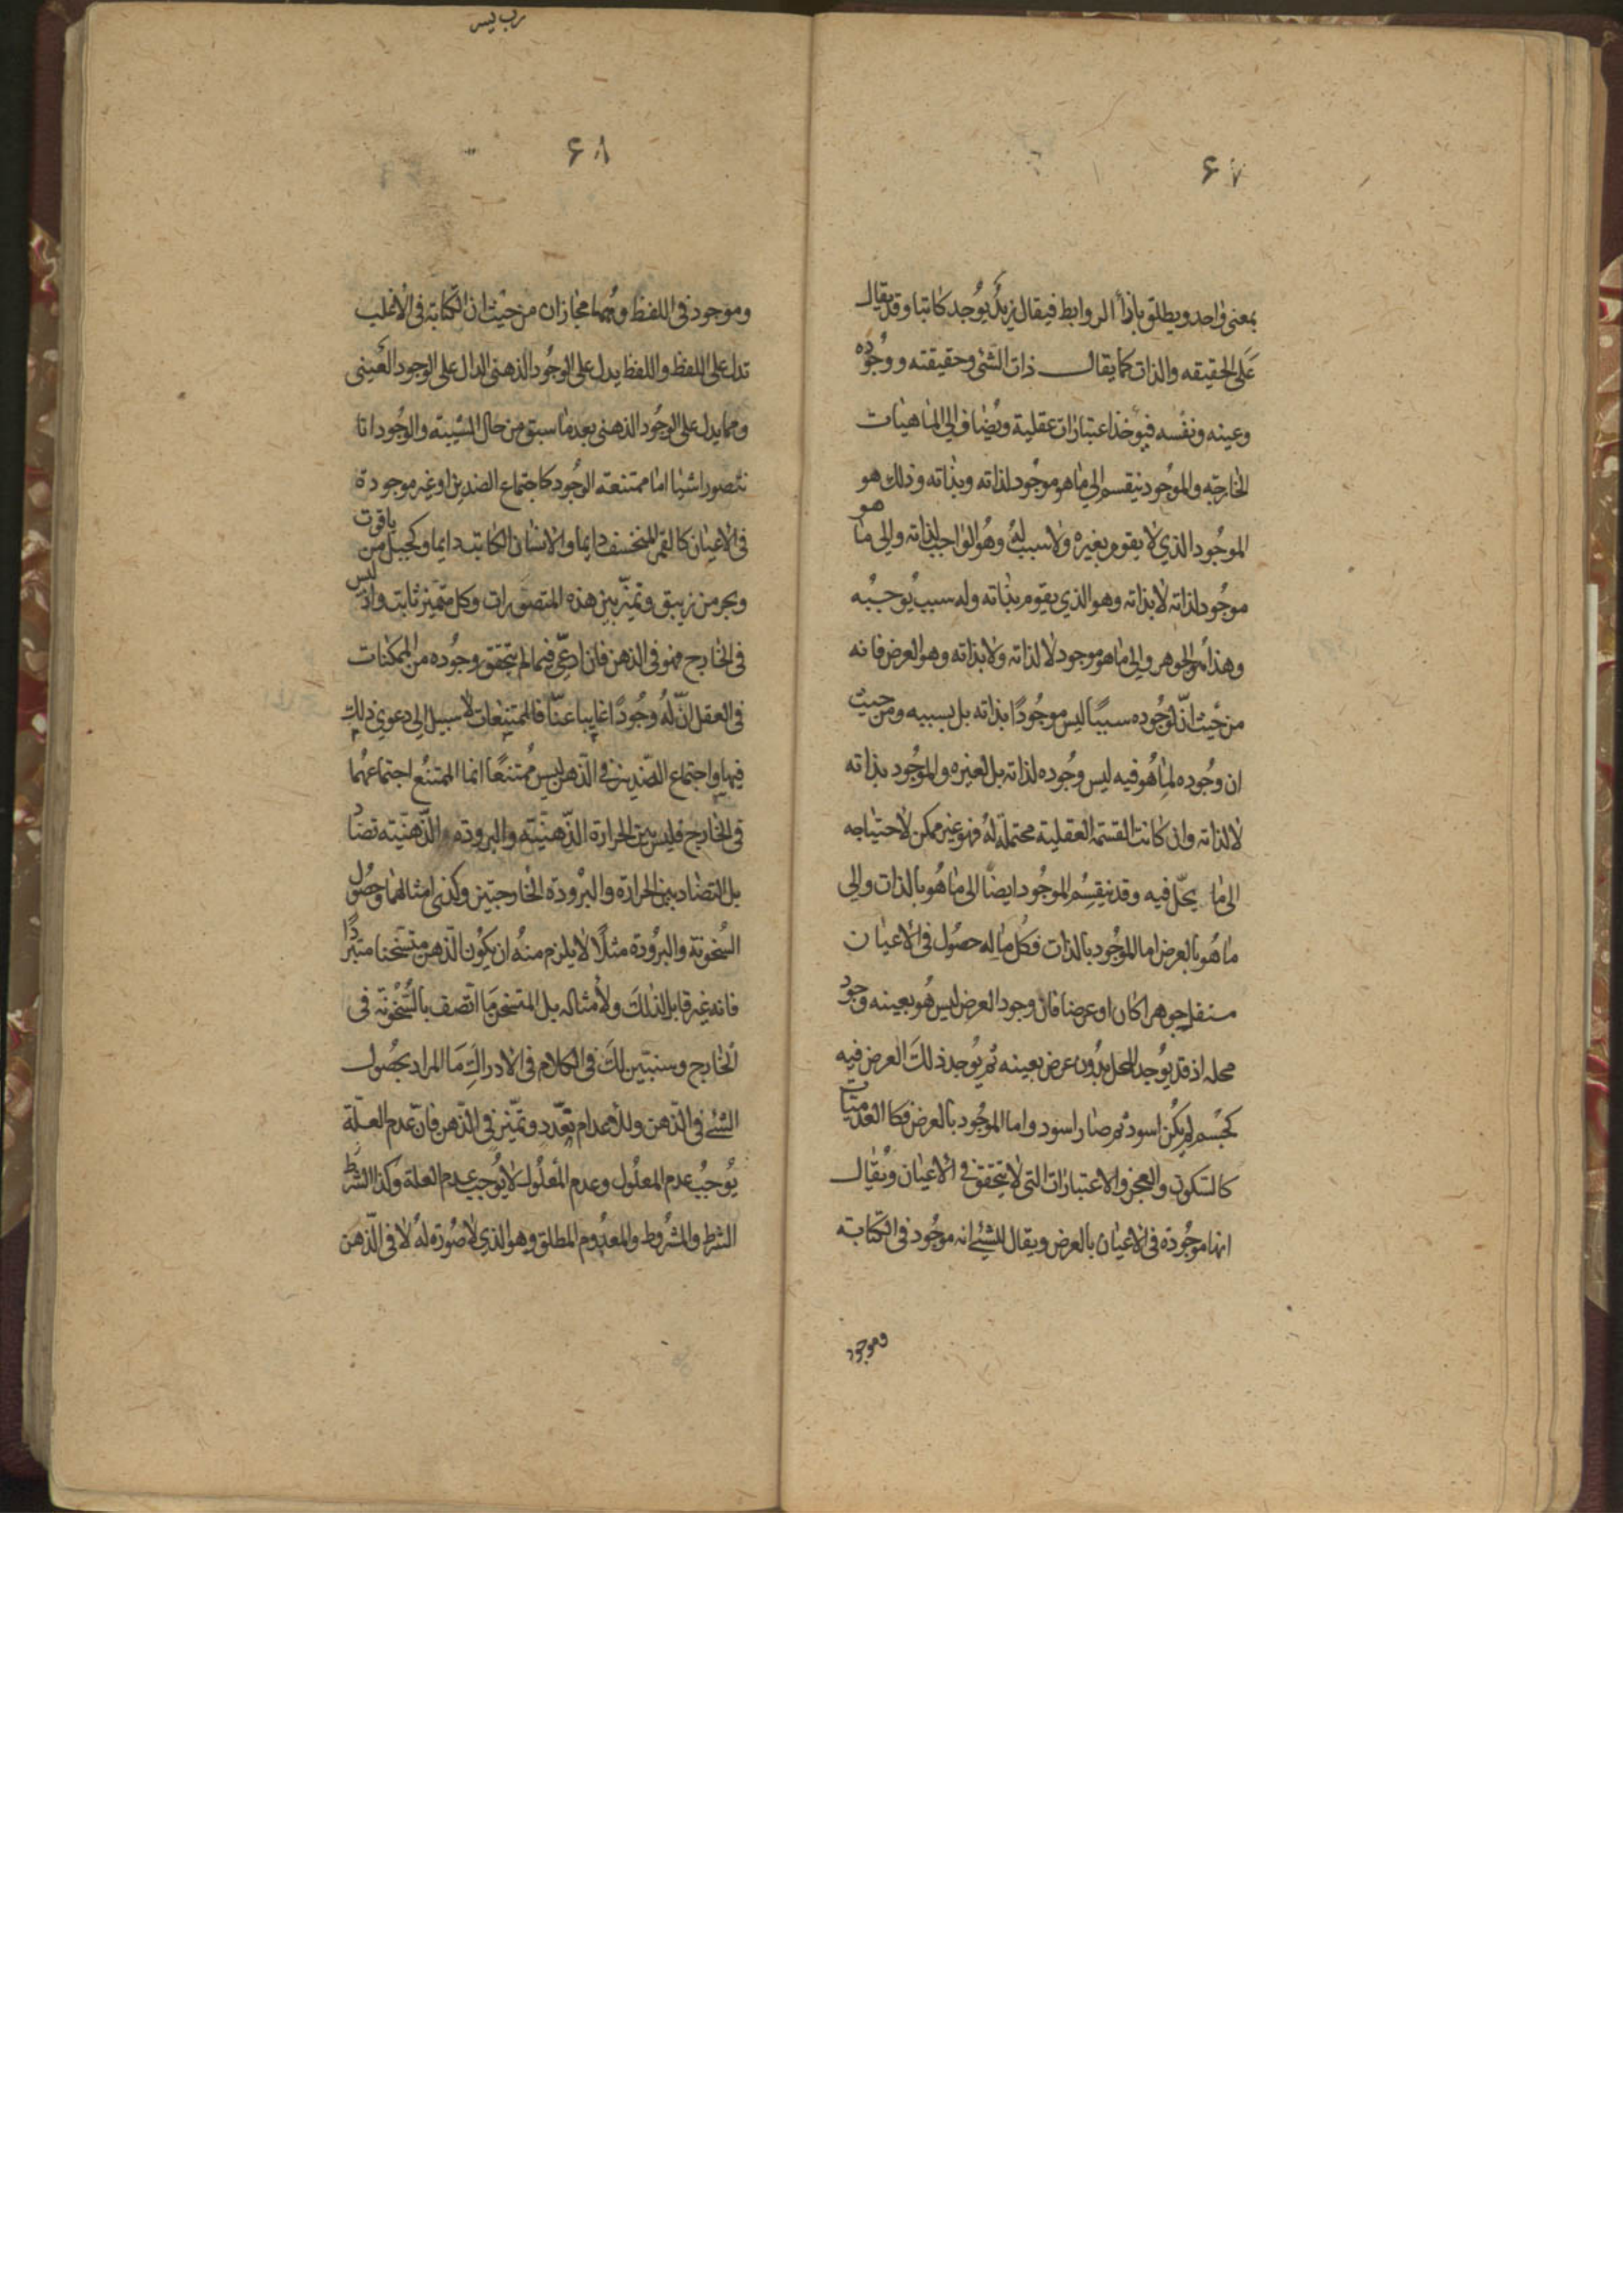 ۶۷
بمعنى واحد ويطلق بازأ الروابط فيقال زيد يوجد كاتبا وقد يقال
على الحقيقه والذات كما يقال ذات الشئ وحقيقته ووجوده
وعينه ونفسه فيوخذ اعتبارات عقلية ويضاف الى الماهيات
الخارجيه والموجود ينقسم الى ما هو موجود لذاته وبذاته وذلك هو
الموجود الذي لا يقوم بغيره ولا سبب له وهو الواجب لذاته والى ما هو
موجود لذاته لا بذاته وهو الذي يقوم بذاته وله سبب يوجبه
وهذا هو الجوهر والى ما هو موجود لا لذاته ولا بذاته وهو العرض فانه
من حيث ان لوجوده سببا ليس موجودا بذاته بل بسببه ومن حيث
ان وجوده لما هو فيه ليس وجوده لذاته بل لغيره والموجود بذاته
لا لذاته وان كانت القسمة العقلية محتملة له فهو غير ممكن لاحتياجه
الى ما يحل فيه وقد ينقسم الموجود ايضا الى ما هو بالذات والى
ما هو بالعرض اما الموجود بالذات فكل ما له حصول في الاعيان
مستقل جوهرا كان او عرضا فان وجود العرض ليس هو بعينه وجود
محله اذ قد يوجد المحل بدون عرض بعينه ثم يوجد ذلك العرض فيه
كجسم لم يكن اسود ثم صار اسود واما الموجود بالعرض فكالعدميات
كالسكون والعجز والاعتبارات التي لا يتحقق في الاعيان ويقال
انها موجودة في الاعيان بالعرض ويقال للشئ انه موجود في الكتابة
وموجود
۶۸
وموجود في اللفظ وهما مجازان من حيث ان الكتابة في الاغلب
تدل على اللفظ واللفظ يدل على الوجود الذهني الدال على الوجود العيني
ومما يدل على الوجود الذهني بعد ما سبق من حال الشيئية والوجود انا
نتصور اشيا اما ممتنعة الوجود كاجتماع الضدين او غير موجودة
في الاعيان كالقمر المنخسف دايما والانسان الكاتب دايما وكجبل من ياقوت
وبحر من زيبق وتميز بين هذه المتصورات وكل متميز ثابت واذ ليس
في الخارج فهو في الذهن فان ادعى فيما لم يتحقق وجوده من الممكنات
في العقل ان له وجودا غايبا عنا فالممتنعات لا سبيل الى دعوى ذلك
فيها واجتماع الضدين في الذهن ليس ممتنعا انما الممتنع اجتماعهما
في الخارج فليس بين الحرارة الذهنية والبرودة الذهنية تضاد
بل التضاد بين الحرارة والبرودة الخارجتين وكذي امثالهما وحصول
السخونة والبرودة مثلا لا يلزم منه ان يكون الذهن متسخنا متبردا
فانه غير قابل لذلك ولأمثاله بل المتسخن ما اتصف بالسخونة في
الخارج وسنبين لك في الكلام في الادراك ما المراد بحصول
الشئ في الذهن وللاعدام تعدد وتميز في الذهن فان عدم العلة
يوجب عدم المعلول وعدم المعلول لا يوجب عدم العلة وكذا الشرط
الشرط والمشروط والمعدوم المطلق وهو الذي لا صورة له لا في الذهن